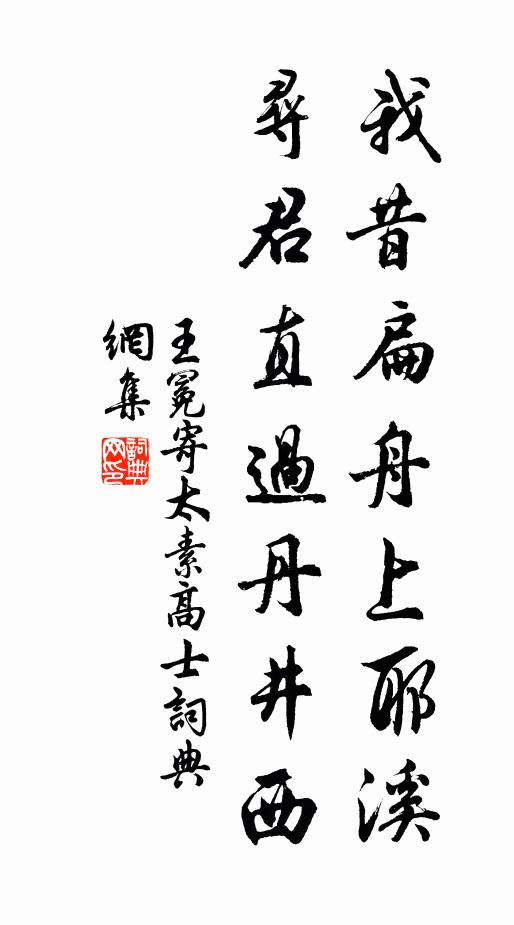 我昔扁舟上耶溪
尋君直過丹井西
王冕寄太素高士詞典
網集
詞典
网印